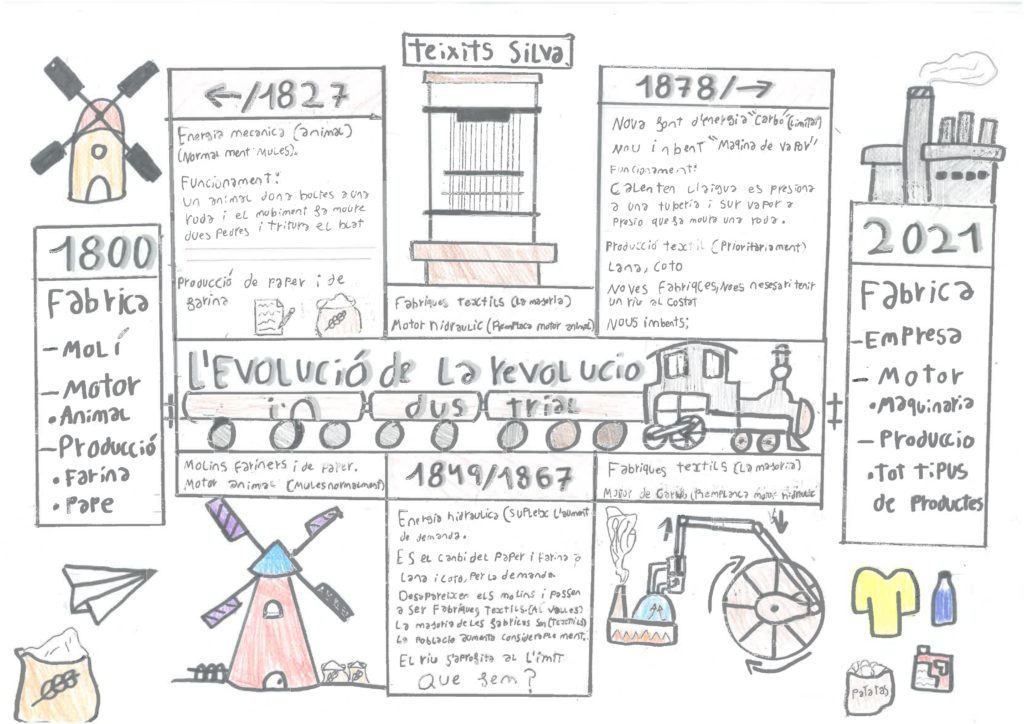 Teixits Silva.
←/1827
Energia mecanica (animal)
(Normal ment Mules).
Funcionament:
Un animal dona boltes a una
roda i el mobiment fa moure
dues pedres i tritura el blat
Producció de paper i de
farina
Fabriques textils (La majoria)
Motor hidraulic (Remplaca motor animal)
1878/→
Nova font d'energia "Carbó" (Limitat)
Nou inbent "Maqina de vapor"
Funcionament:
Calenten l'aigua es presiona
a una tuberia i surt vapor a
presio que fa moure una roda.
Producció textil (Prioritariament)
Lana, coto
Noves fabriqes, No es nesesari tenir
un riu al costat
Nous inbents;
1800
Fabrica
- Molí
- Motor
• Animal
- Producció
• Farina
• Pape
L'Evolució de La revolucio
in dus trial
2021
Fabrica
- Empresa
- Motor
• Maquinaria
- Produccio
• Tot tipus
de Productes
Molins fariners i de paper.
Motor animal (Mules normalment)
1849/1867
Energia hidraulica (Supleix l'aument
de demanda.
Es el canbi del paper i farina a
Lana i coto, per la demanda.
Desapareixen els molins i passen
a ser fabriques textils (Al Valles)
La majoria de les fabricas son (textils)
La població aumenta considerablement.
El riu s'aprofita al límit
Que fem?
Fabriques textils (La majoria)
Motor de Carbó (Remplanca motor hidraulic
Patatas